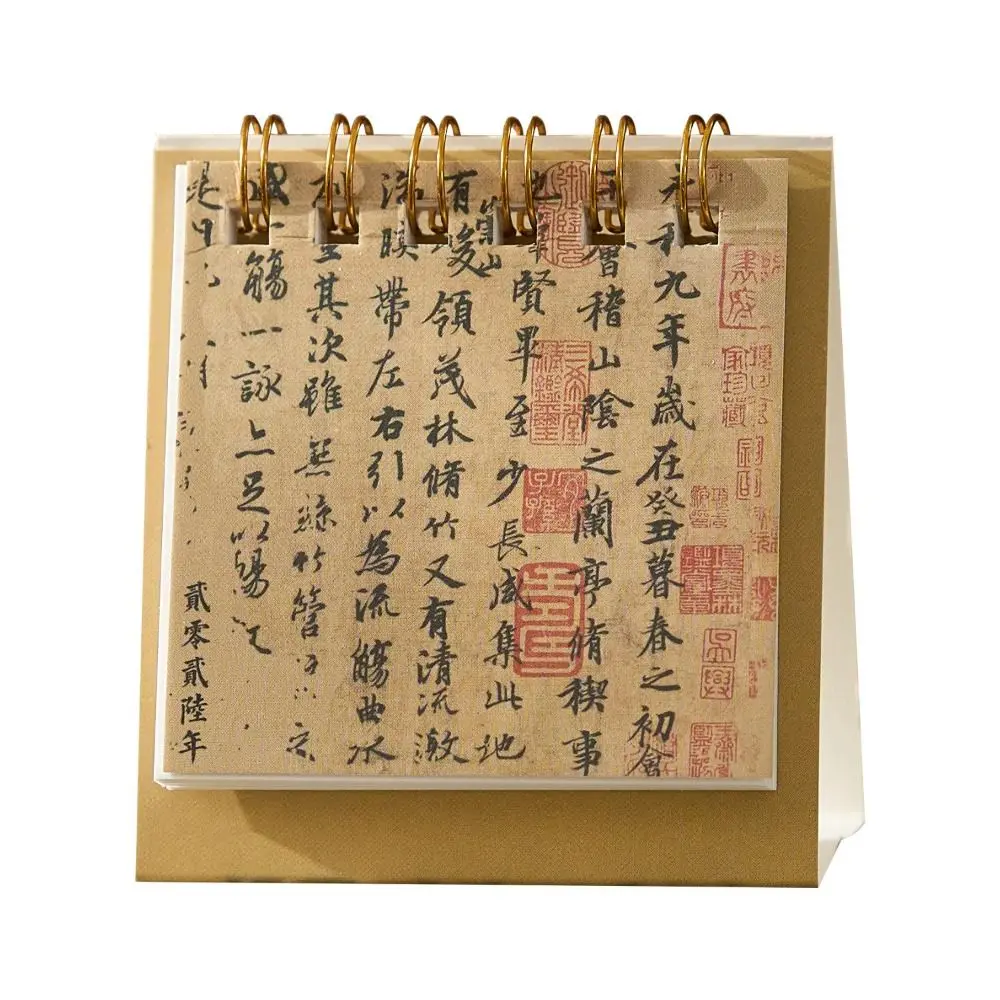 永和九年歲在癸丑暮春之初會
會稽山陰之蘭亭脩禊事
也羣賢畢至少長咸集此地
有崇山峻領茂林脩竹又有清流激
湍暎帶左右引以為流觴曲水
列坐其次雖無絲竹管
盛一觴一詠亦足以暢
是日
貳零貳陸年
三希堂精鑑璽
家珍藏